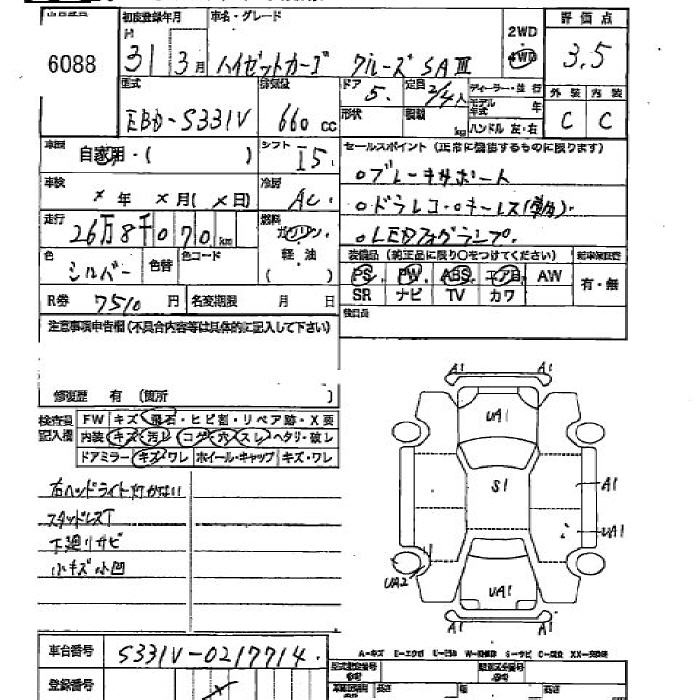 初度登録年月 車名・グレード 評価点
6088 31年 3月 ハイゼットカーゴ クルーズSAⅢ 2WD 4WD 3.5
型式 排気量 ドア 定員 ディーラー・並行 外装 内装
EBD-S331V 660cc 5 2/4人 モデル年式 年 C C
形状 積載 kg ハンドル 左・右
車歴 自家用・( ) シフト I5 セールスポイント(正常に機能するものに限ります)
車検 × 年 × 月(× 日) 冷房 AC ○ブレーキサポート
○ドラレコ・○キーレス
走行 26万8千070km 燃料 ガソリン 軽油 ( ) ○LEDフォグランプ.
色 シルバー 色替 色コード 装備品(純正品に限り○をつけてください)
PS PW ABS エアB AW 有・無
R券 7510円 名変期限 月 日 SR ナビ TV カワ
注意事項申告欄(不具合内容等は具体的に記入して下さい) 検口員
修復歴 有(箇所 )
検査員記入欄 FW キズ・飛石・ヒビ割・リペア跡・X要
内装 キズ・汚レ・コゲ・穴・スレ・ヘタリ・破レ
ドアミラー キズ・ワレ ホイール・キャップ キズ・ワレ
右ヘッドライト灯かない
スタッドレスT
下廻りサビ
小キズ小凹
A1 A1
UA1
S1
A1
UA1
UA2
UA1
A1 A1
車台番号 S331V-0217714
登録番号
A-キズ